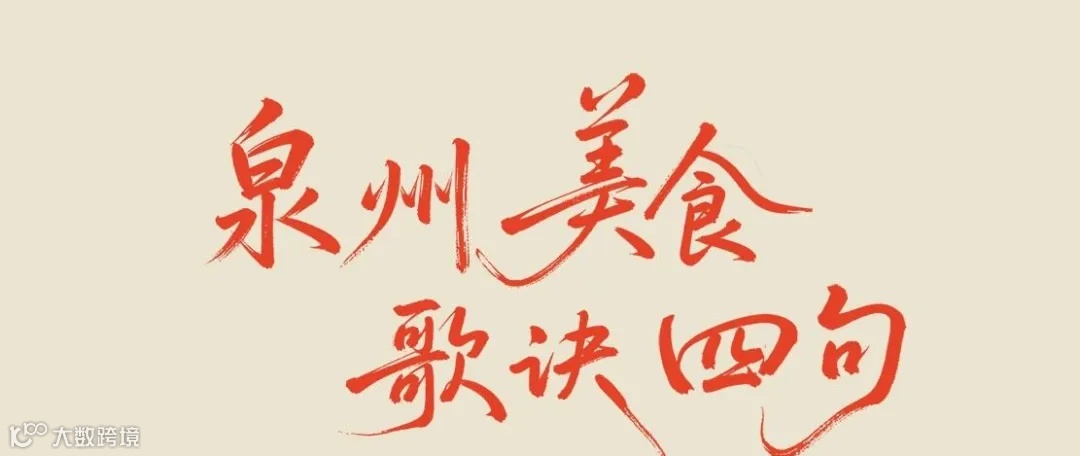 泉州美食
歌诀四句
大数跨境